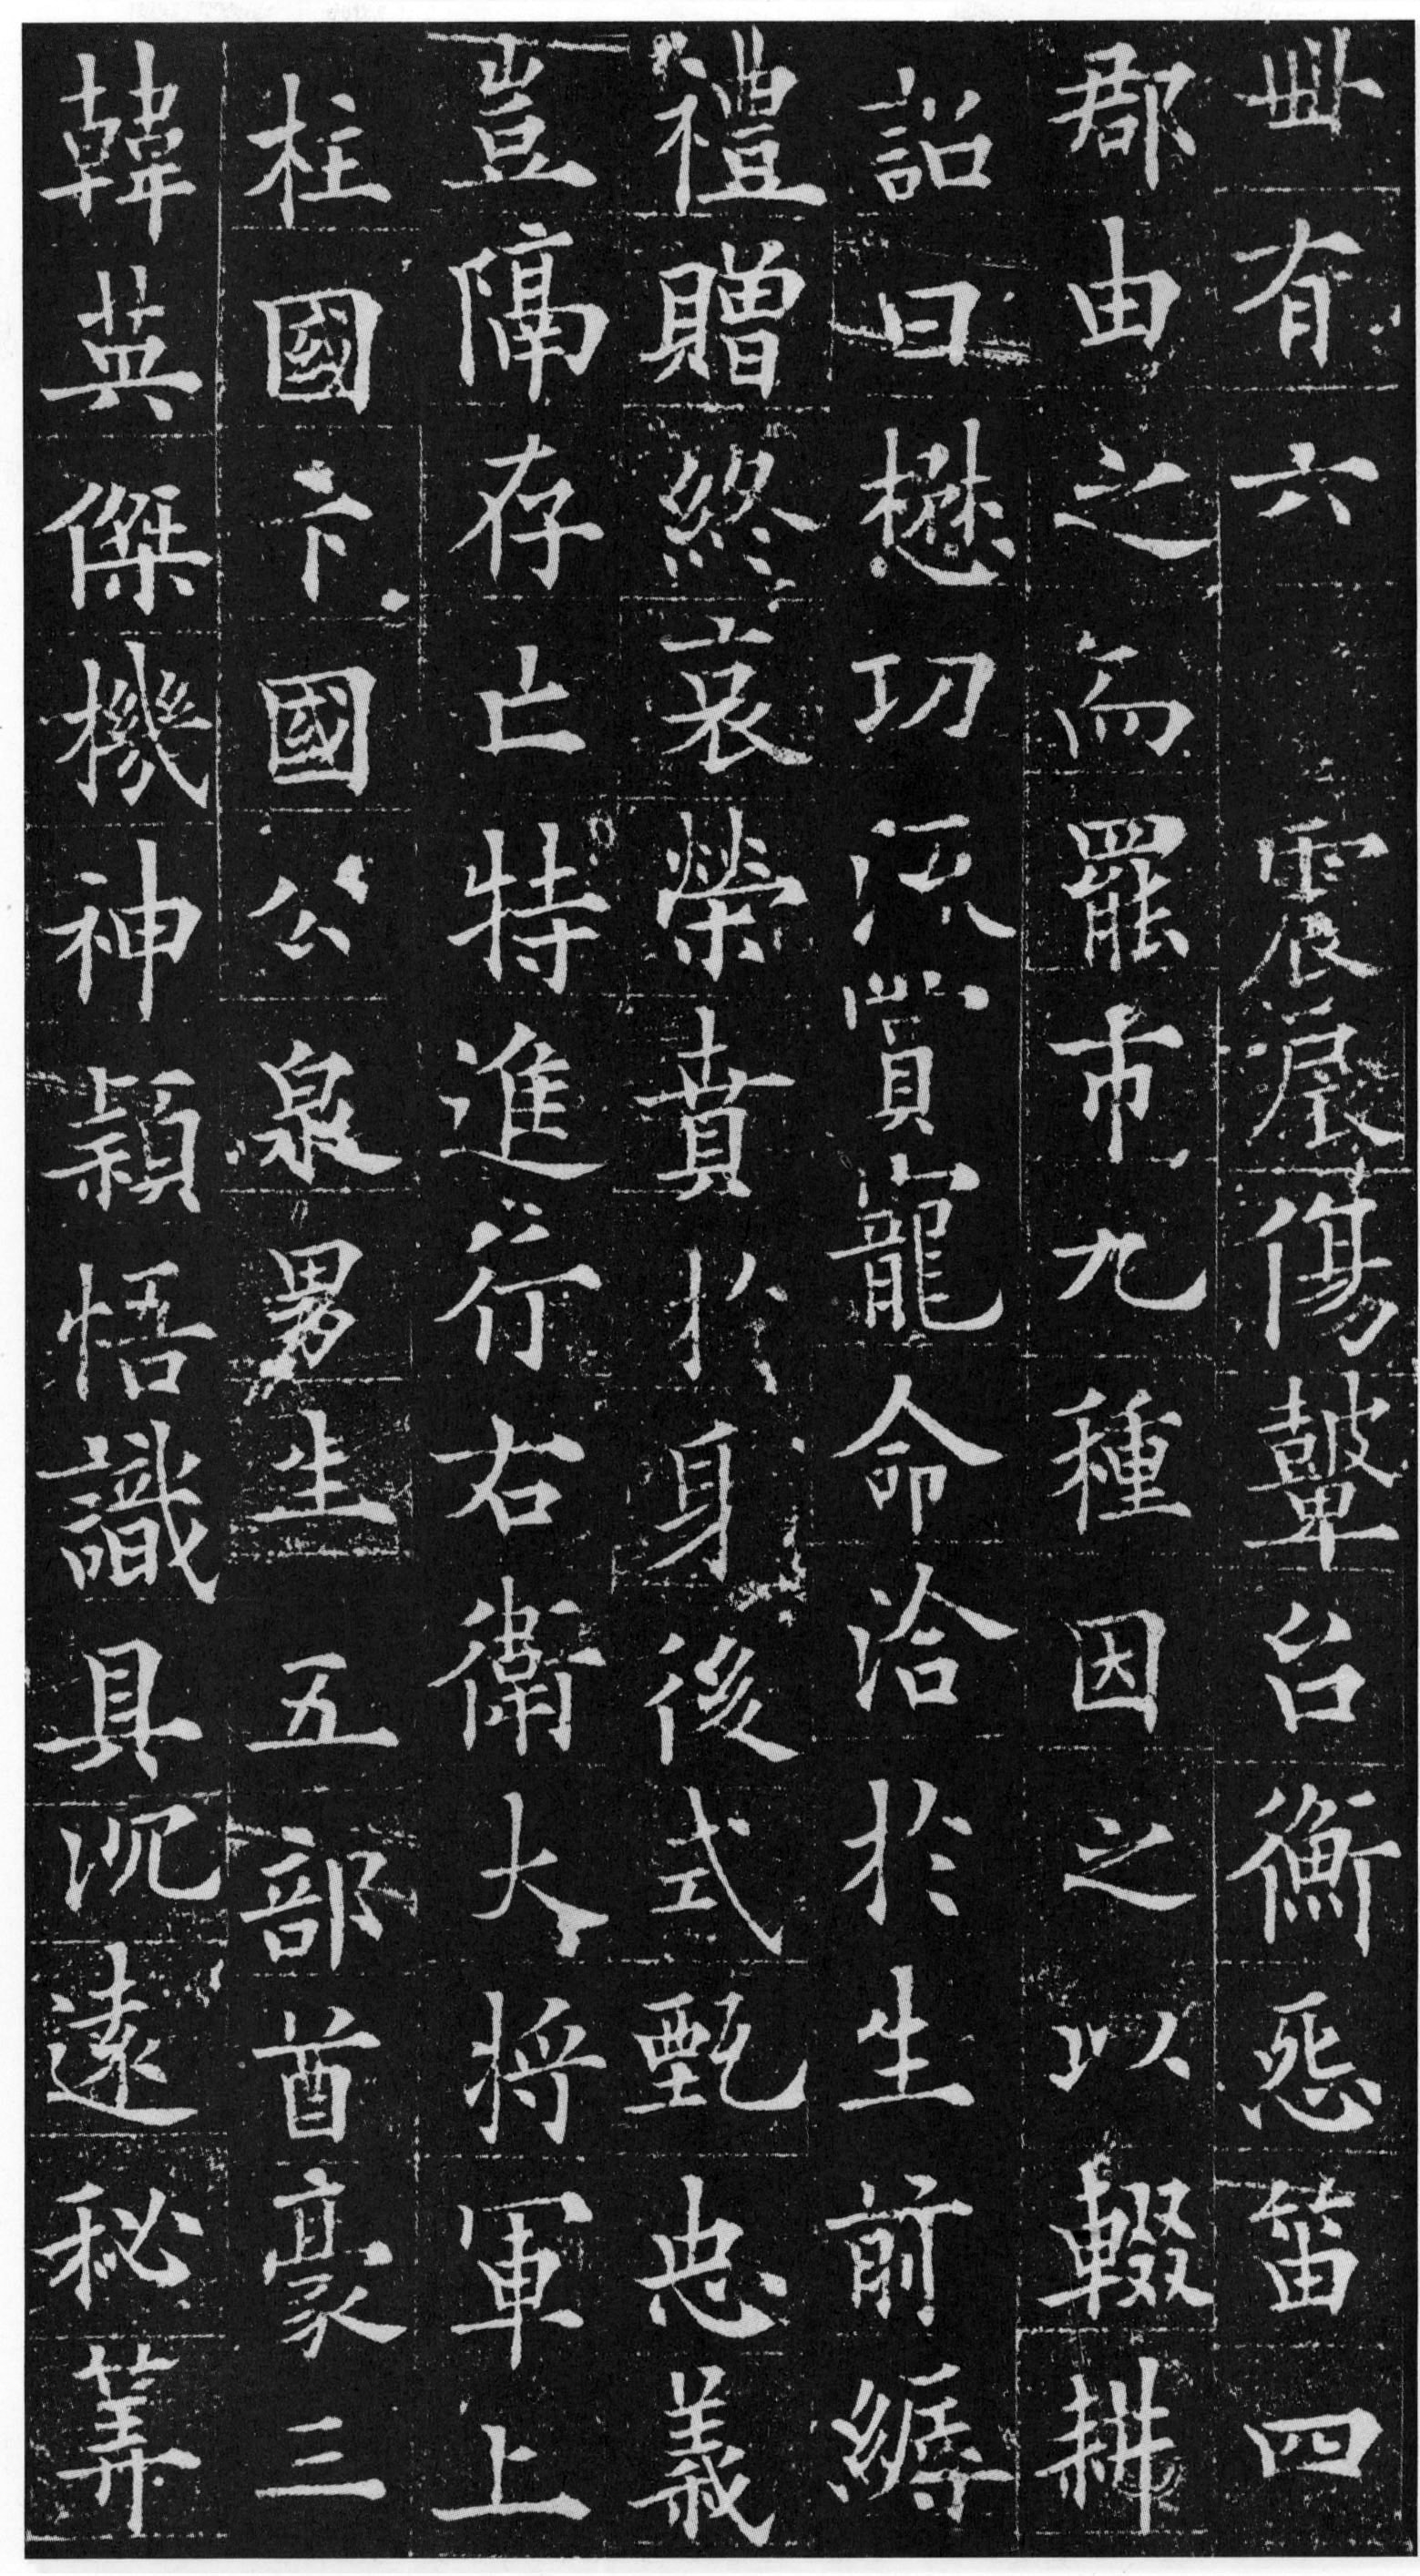 卌有六震扆傷鼙台衡怨笛四
郡由之而罷市九種因之以輟耕
詔曰懋功流賞寵命洽於生前縟
禮贈終哀榮賁於身後式甄忠義
豈隔存亡特進行右衛大将軍上
柱國卞國公泉男生五部酋豪三
韓英傑機神穎悟識具沉遠秘筭